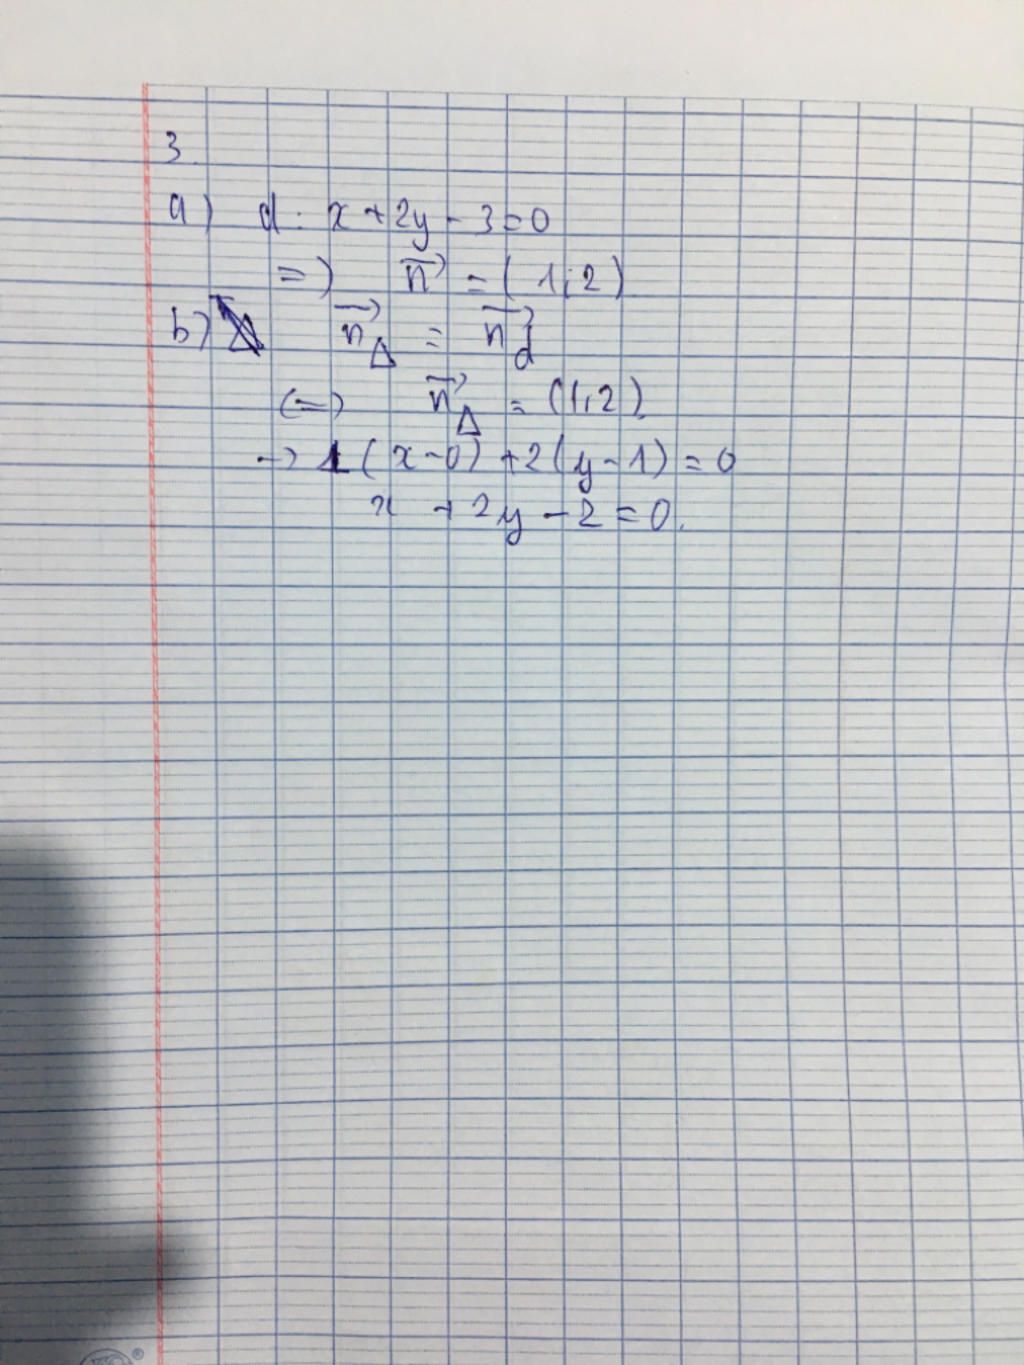 3.
a) d: x + 2y - 3 = 0
=) n⃗ = (1; 2)
b) n⃗_Δ = n⃗_d
(=) n⃗_Δ = (1; 2)
-> 1(x - 0) + 2(y - 1) = 0
x + 2y - 2 = 0.